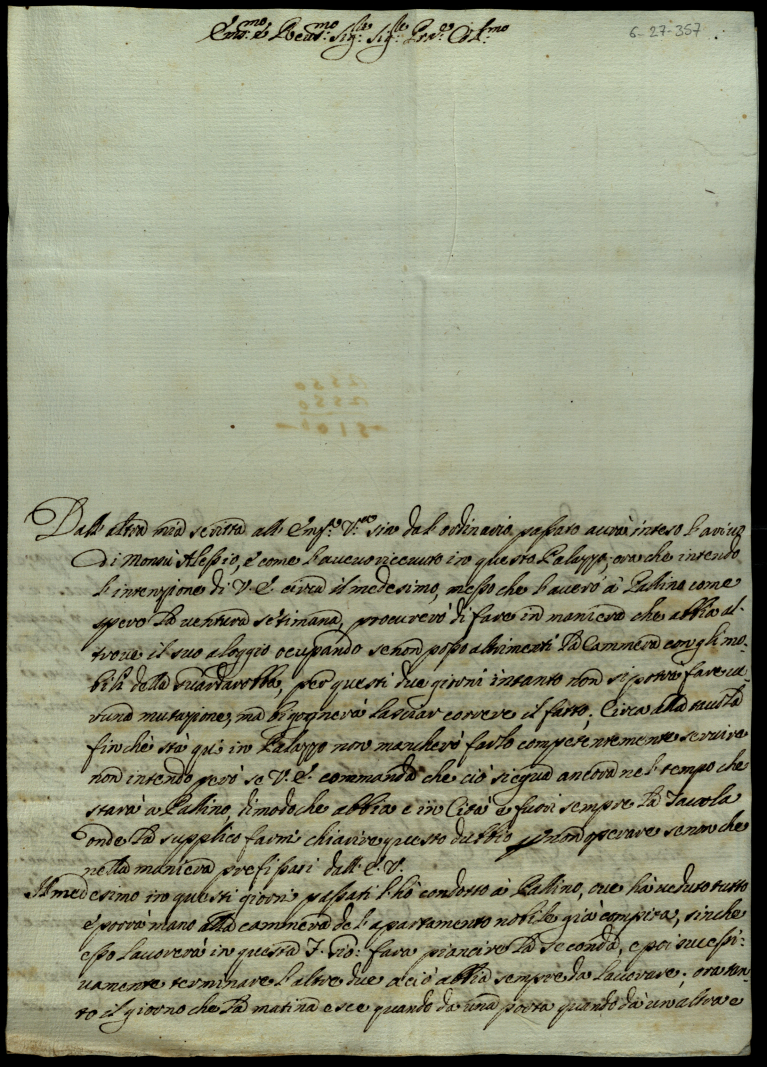 Em.mo e Reu.mo Sig.re Sig.re Pron.e Col.mo
6-27-357
2550
2550
5100
Dall'altra mia scritta all'Em.za V.ra sin dal'ordinario passato aurà inteso l'arriuo
di Monsù Alessio, e come l'aueuo riceuuto in questo Palazzo, ora che intendo
l'intenzione di V. E. circa il medesimo, messo che l'auerò à Pallino come
spero la uentura setimana, procurerò di fare in maniera che abbia al-
troue il suo aloggio ocupando se non posso altrimenti la Cammera con gli mo-
bili della Guardarobba, per questi due giorni intanto non si potrà fare ue-
runa mutazione, mà bisognerà lasciar correre il fatto; Circa alla tauola
finchè stà quì in Palazzo non mancherò farlo competentemente seruire
non intendo però se V. E. commanda che ciò siegua ancora nel'tempo che
starà a Pallino, dimodo che abbia e in Cità e fuori sempre la Tauola
onde la supplico farmi chiarire questo dubbio p non operare se non che
nella maniera prefissami dall'E. V.
Il medesimo in questi giorni passati l'hò condotto à Pallino, oue hà ueduto tutto
e porrà mano alla cammera del'apartamento nobile già compita, sinche
esso lauorerà in questa F. Gio: farà piancire la seconda, e poi successi-
uamente terminare l'altre due acciò abbia sempre da lauorare; ora tan-
to il giorno che la matina esce quando da una porta quando da un'altra e